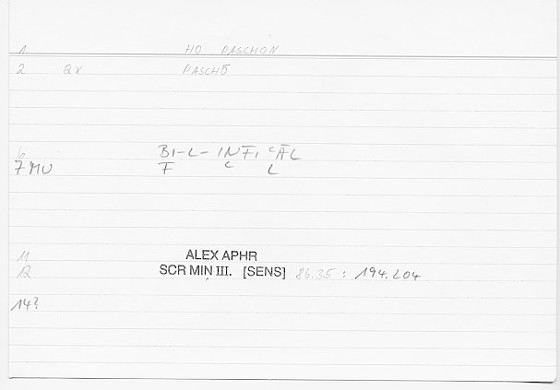 1 HO PASCHON
2 QV PASCHŌ
6 BI-L-INFI CĀL
7 MU F C L
11 ALEX APHR
12 SCR MIN III. [SENS] 86.35 : 194.204
14?